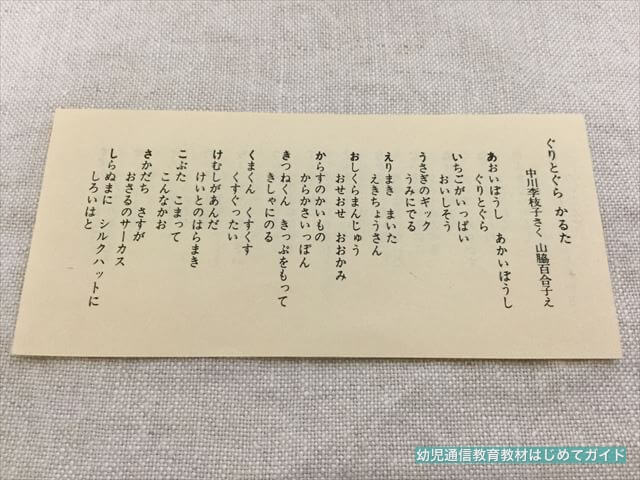 ぐりとぐら かるた
中川李枝子さく 山脇百合子え
あおいぼうし あかいぼうし
ぐりとぐら
いちごがいっぱい
おいしそう
うさぎのギック
うみにでる
えりまき まいた
えきちょうさん
おしくらまんじゅう
おせおせ おおかみ
からすのかいもの
からかさいっぽん
きつねくん きっぷをもって
きしゃにのる
くまくん くすくす
くすぐったい
けむしがあんだ
けいとのはらまき
こぶた こまって
こんなかお
さかだち さすが
おさるのサーカス
しらぬまに シルクハットに
しろいはと
幼児通信教育教材はじめてガイド